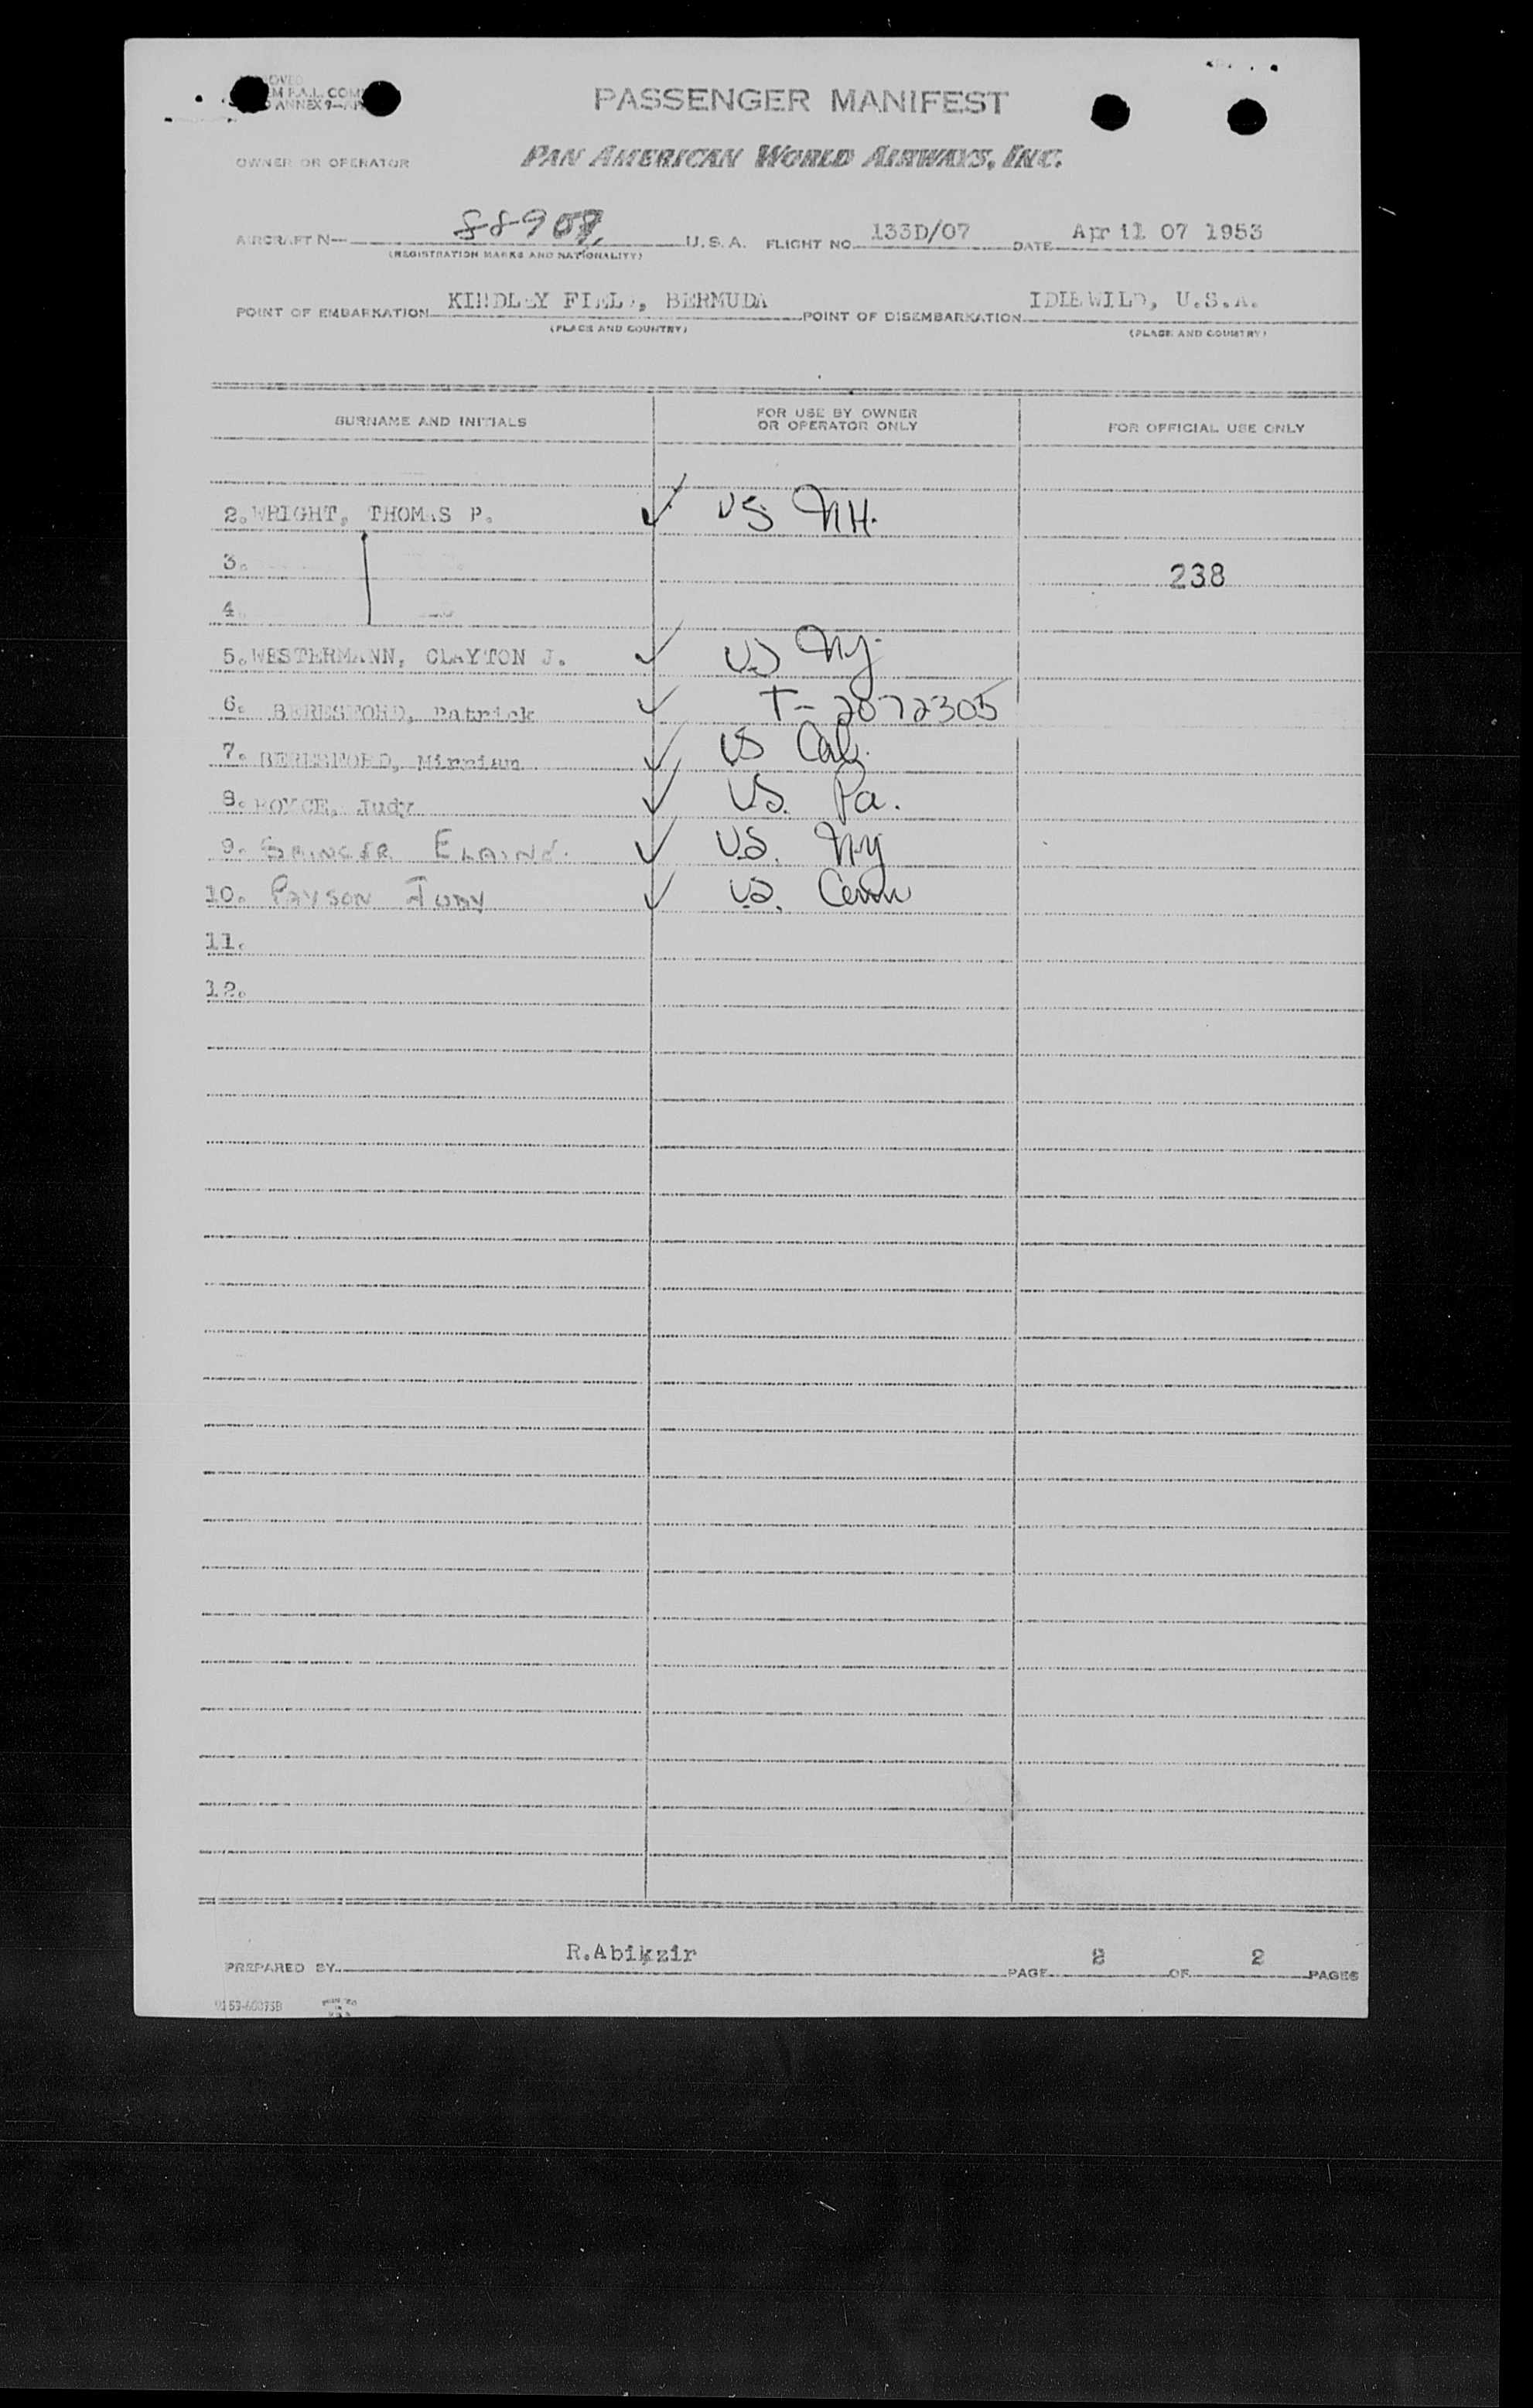 PASSENGER MANIFEST
OWNER OR OPERATOR PAN AMERICAN WORLD AIRWAYS, INC.
AIRCRAFT N— 88909 U.S.A. FLIGHT NO. 133D/07 DATE April 07 1953
(REGISTRATION MARKS AND NATIONALITY)
POINT OF EMBARKATION KINDLEY FIELD, BERMUDA POINT OF DISEMBARKATION IDLEWILD, U.S.A.
(PLACE AND COUNTRY) (PLACE AND COUNTRY)
SURNAME AND INITIALS FOR USE BY OWNER OR OPERATOR ONLY FOR OFFICIAL USE ONLY
2. WRIGHT, THOMAS P. ✓ US NH.
3. 238
4.
5. WESTERMANN, CLAYTON J. ✓ US NY
6. BERESFORD, Patrick ✓ T-2072305
7. BERESFORD, Mirriam ✓ US Cal.
8. Judy ✓ US. Pa.
9. ELAINE ✓ U.S. NY
10. PAYSON JUDY ✓ U.S. Conn
11.
12.
PREPARED BY R.Abikzir PAGE 2 OF 2 PAGES